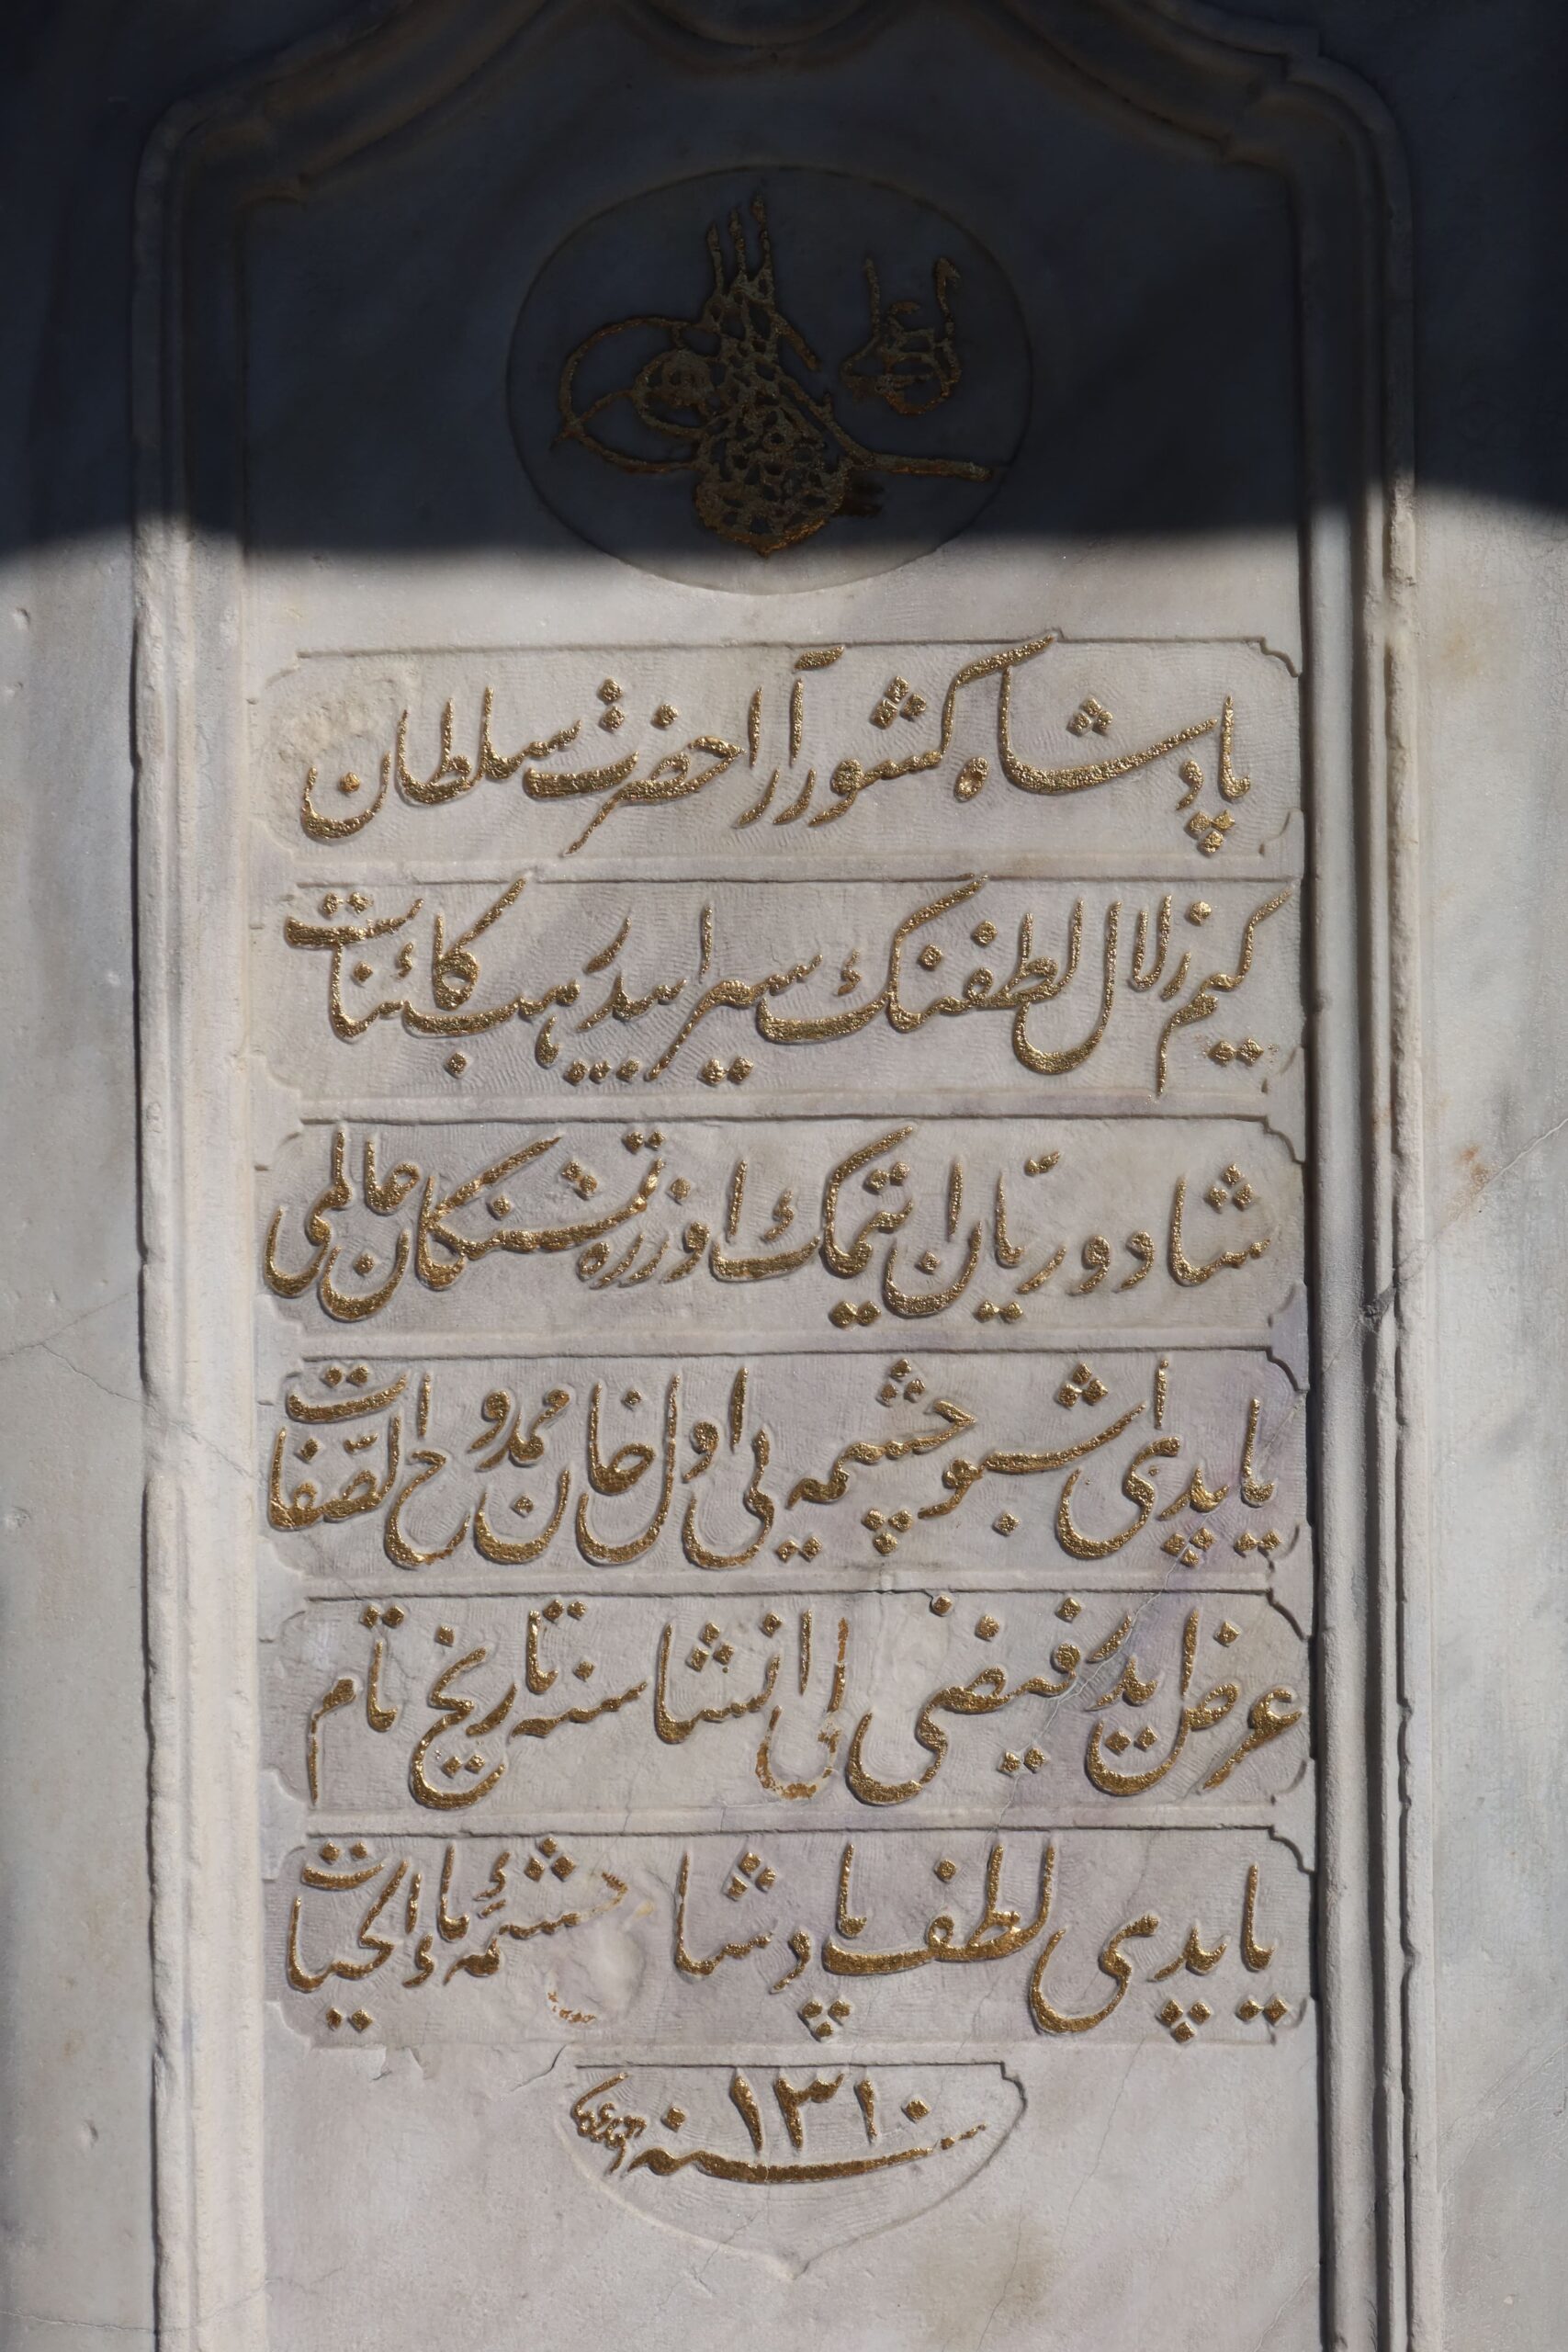 پادشاه كشور آرا حضرت سلطان
كيم زلال لطفنك سيرابيدر هب كائنات
شاد و ريان ايتمك اوزره تشنكان عالمى
ياپدى اشبو چشمه يى اول خان ممدوح الصّفات
عرض ايدر فيضى قولى انشاسنه تاريخ تام
ياپدى لطف پادشا چشمهٔ ماء الحيات
سنه ١٣١٠